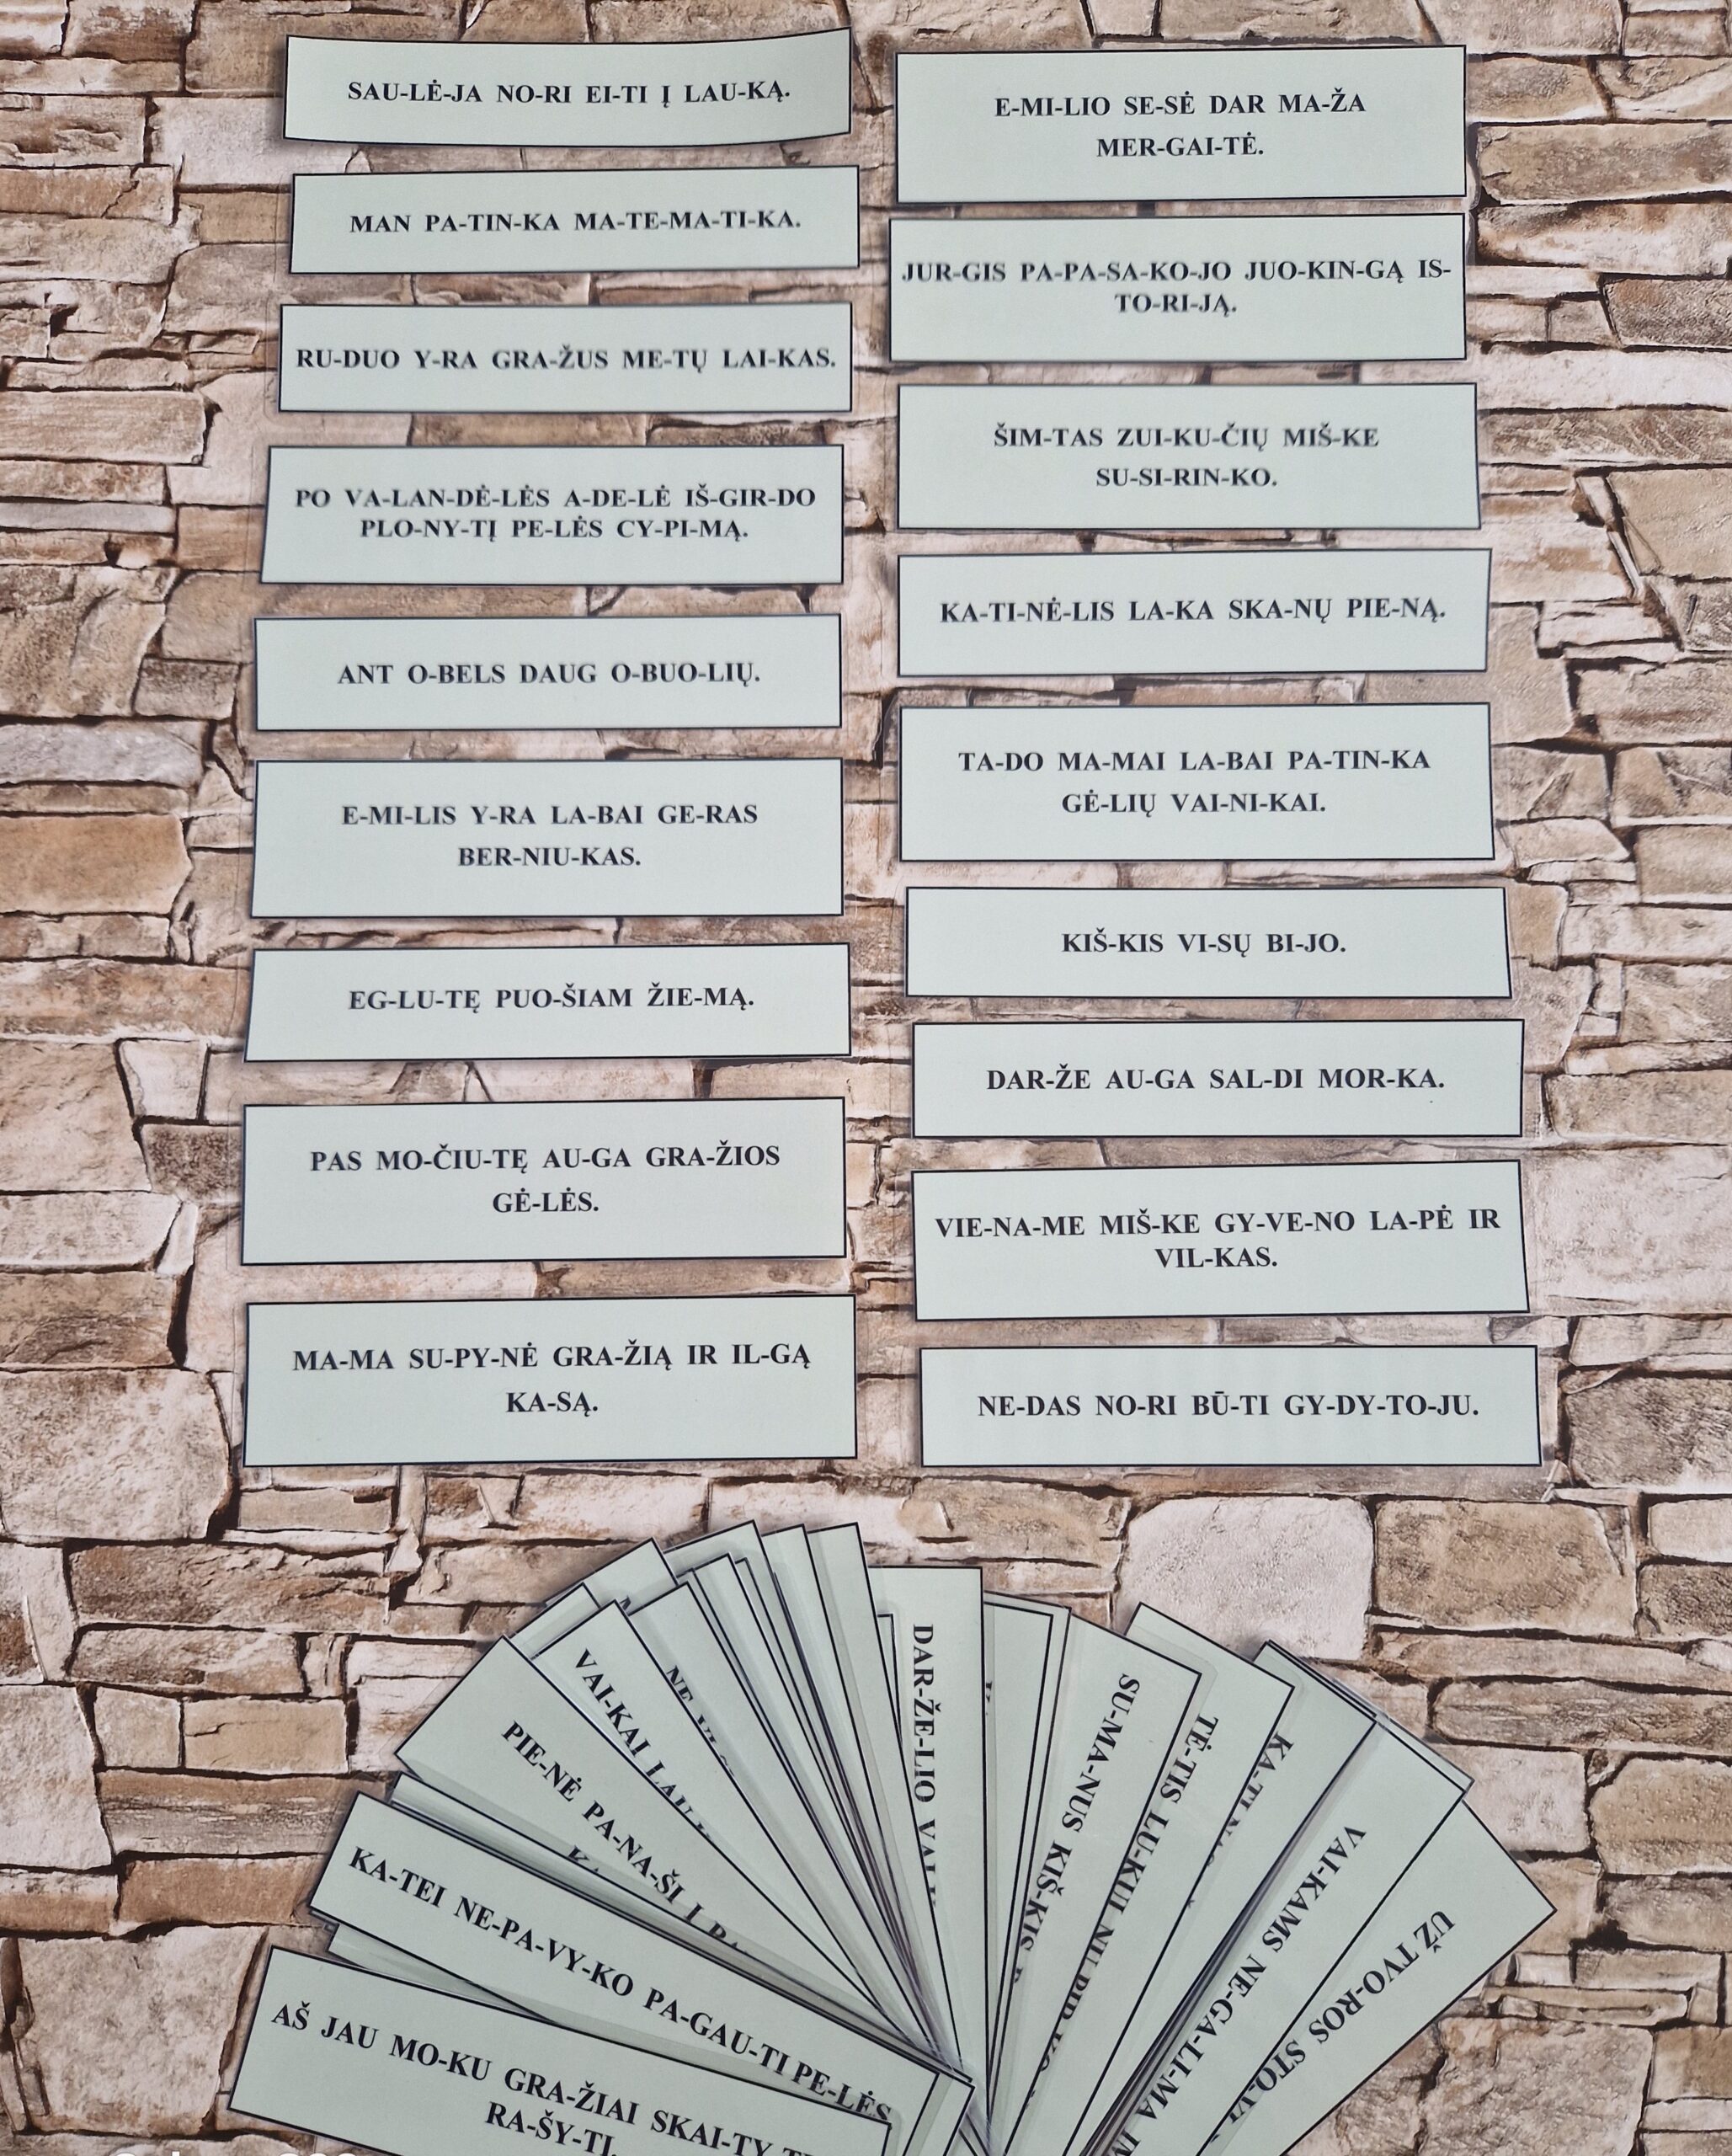 SAU-LĖ-JA NO-RI EI-TI Į LAU-KĄ.
MAN PA-TIN-KA MA-TE-MA-TI-KA.
RU-DUO Y-RA GRA-ŽUS ME-TŲ LAI-KAS.
PO VA-LAN-DĖ-LĖS A-DE-LĖ IŠ-GIR-DO
PLO-NY-TĮ PE-LĖS CY-PI-MĄ.
ANT O-BELS DAUG O-BUO-LIŲ.
E-MI-LIS Y-RA LA-BAI GE-RAS
BER-NIU-KAS.
EG-LU-TĘ PUO-ŠIAM ŽIE-MĄ.
PAS MO-ČIU-TĘ AU-GA GRA-ŽIOS
GĖ-LĖS.
MA-MA SU-PY-NĖ GRA-ŽIĄ IR IL-GĄ
KA-SĄ.
E-MI-LIO SE-SĖ DAR MA-ŽA
MER-GAI-TĖ.
JUR-GIS PA-PA-SA-KO-JO JUO-KIN-GĄ IS-
TO-RI-JĄ.
ŠIM-TAS ZUI-KU-ČIŲ MIŠ-KE
SU-SI-RIN-KO.
KA-TI-NĖ-LIS LA-KA SKA-NŲ PIE-NĄ.
TA-DO MA-MAI LA-BAI PA-TIN-KA
GĖ-LIŲ VAI-NI-KAI.
KIŠ-KIS VI-SŲ BI-JO.
DAR-ŽE AU-GA SAL-DI MOR-KA.
VIE-NA-ME MIŠ-KE GY-VE-NO LA-PĖ IR
VIL-KAS.
NE-DAS NO-RI BŪ-TI GY-DY-TO-JU.
AŠ JAU MO-KU GRA-ŽIAI SKAI-TY-TI
RA-ŠY-TI.
KA-TEI NE-PA-VY-KO PA-GAU-TI PE-LĖS
PIE-NĖ PA-NA-ŠI Į
VAI-KAI
DAR-ŽE-LIO
SU-MA-NUS KIŠ-KIS
TĖ-TIS LU-KUI
VAI-KAMS NE-GA-LI-MA
UŽ TVO-ROS